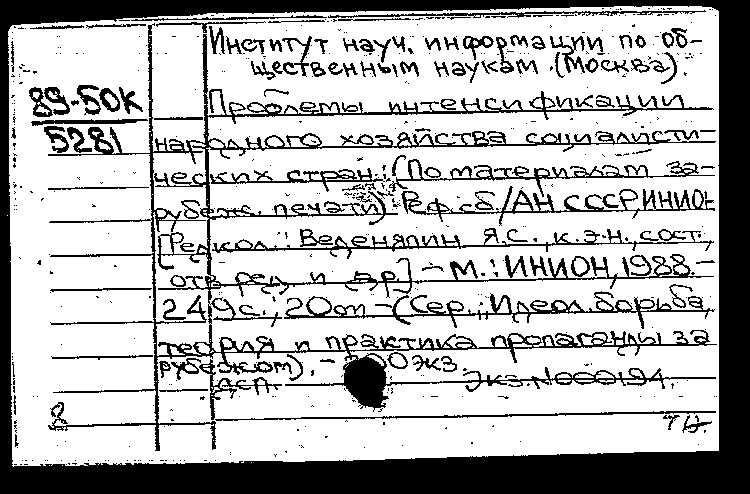 Институт науч. информации по об-
щественным наукам (Москва).
89-50К
5281
Проблемы интенсификации
народного хозяйства социалисти-
ческих стран: (По материалам за-
рубеж. печати) Реф. сб./АН СССР, ИНИОН
[Редкол.: Веденяпин Я.С., к.э.н., сост.,
отв ред и др] - М.: ИНИОН, 1988.-
249с.; 20см - (Сер.: Идеол. борьба,
теория и практика пропаганды за
рубежом). - 00экз.
ДСП. Экз. N000194.
8